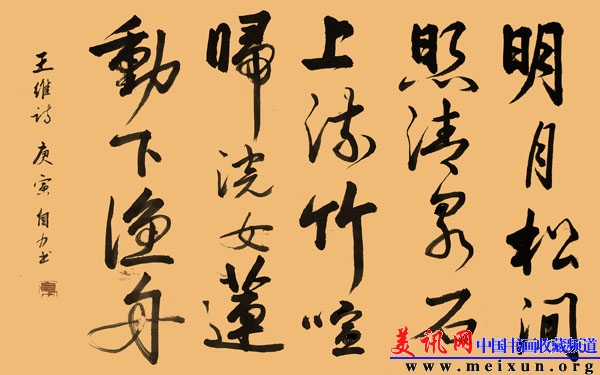 明月松间
照清泉石
上流竹喧
歸浣女蓮
動下渔舟
王维诗 庚寅 自力书
美讯网 中国书画收藏频道
www.meixun.org